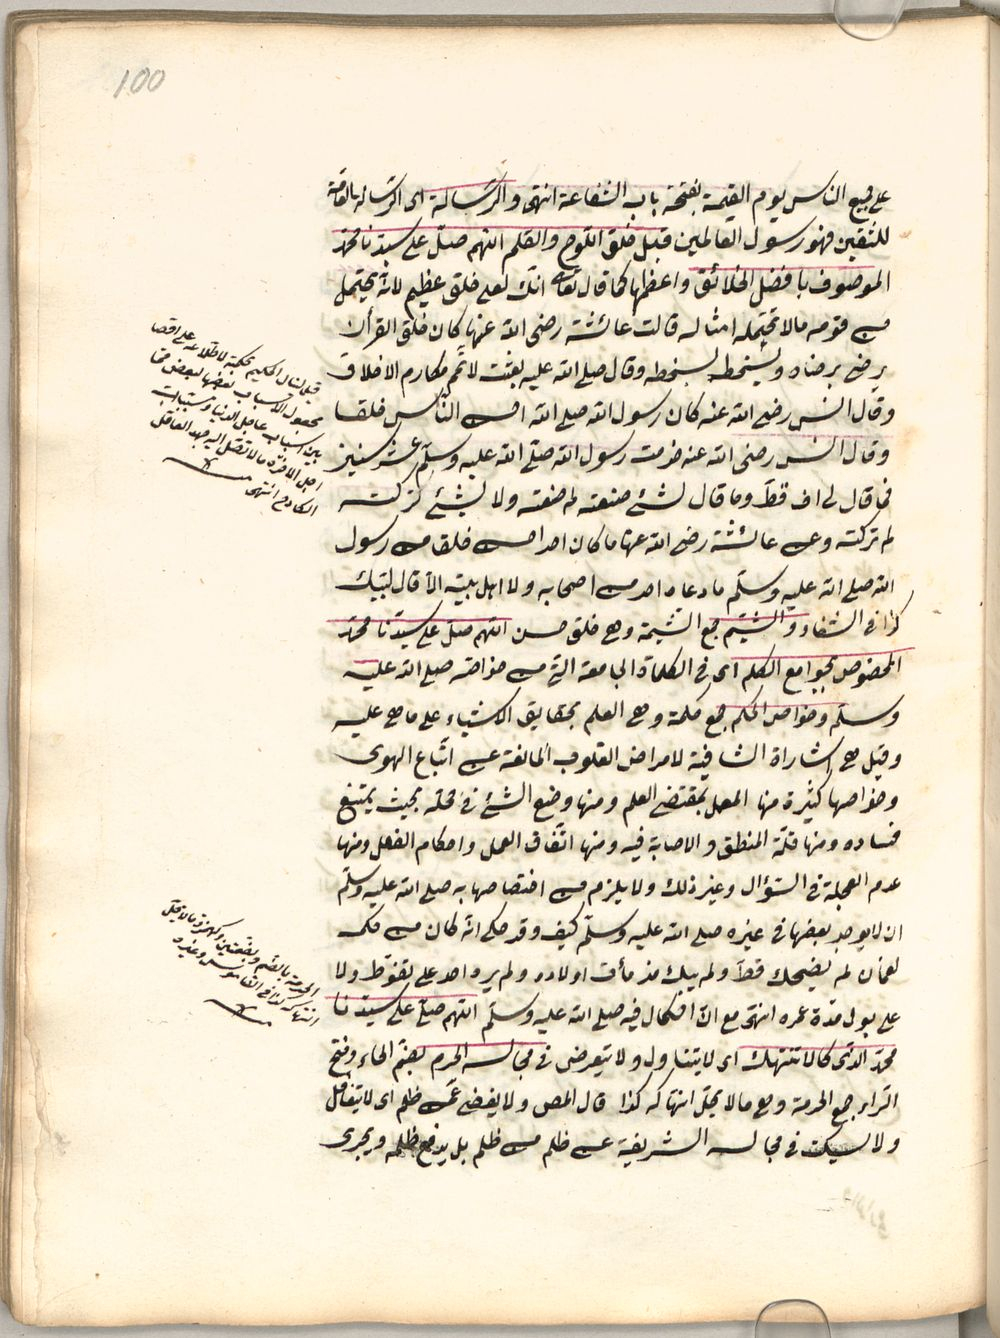 100
على جميع الناس يوم القيمة بفتحة باب الشفاعة انتهى والرسالة اى الرسالة العامة
للثقلين فهو رسول العالمين قبل خلق اللوح والقلم اللهم صلّ على سيدنا محمد
الموصوف بافضل الخلائق واعظمها كما قال تعالى انك لعلى خلق عظيم لانه يحتمل
من قومه مالا تحتمله امثاله قالت عائشة رضى الله عنها كان خلقه القرآن
يرضى برضاه ويسخط بسخطه وقال صلى الله عليه بعثت لاتمم مكارم الاخلاق
وقال انس رضى الله عنه كان رسول الله صلى الله احسن الناس خلقا
وقال انس رضى الله عنه خدمت رسول الله صلى الله عليه وسلم عشر سنين
فما قال لى اف قط وما قال لشئ صنعته لم صنعته ولا لشئ تركته
لم تركته وعن عائشة رضى الله عنها ما كان احد احسن خلقا من رسول
الله صلى الله عليه وسلم ما دعاه احد من اصحابه ولا اهل بيته الا قال لبيك
كذا فى الشفاء والشيم جمع الشيمة وهى خلق حسن اللهم صل على سيدنا محمد
المخصوص بجوامع الكلم اى فى الكلماة الجامعة التى من خواصه صلى الله عليه
وسلم وخواص الحكم جمع حكمة وهى العلم بحقايق الاشياء على ما هى عليه
وقيل هى اشاراة الشافية لامراض القلوب المانعة عن اتباع الهوى
وخواصها كثيرة منها العمل بمقتضى العلم ومنها وضع الشئ فى محله بحيث يمتنع
فساده ومنها قلة المنطق والاصابة فيه ومنها اتفاق العمل واحكام الفعل ومنها
عدم العجلة فى السؤال وغير ذلك ولا يلزم من اختصاصها به صلى الله عليه وسلم
ان لا يوجد بعضها فى غيره صلى الله عليه وسلم كيف وقد حكى انه كان من حكم
لقمان لم يضحك قط ولم يبك مذ مات اولاده ولم يره احد على تغوط ولا
على بول مدة عمره انتهى مع ان الكمال فيه صلى الله عليه وسلم اللهم صل على سيدنا
محمد الذى كان لا تنتهك اى لا يتناول ولا يتعرض فى مجالسه الحرم بضم الحاء وفتح
الراء جمع الحرمة وهى مالا يحل انتهاكه كذا قال المص ولا يغضى عمن ظلم اى لا يتغافل
ولا يسكت فى مجالسه الشريفة عن ظلم من ظلم بل يدفع ظلمه ويجرى
قيل لسان الحكيم بحكمة لاطلاعه على اقصا
محصول الاسباب بعضها لبعض فما
بين اسباب عاجل الدنيا ومسببات
اجل الآخرة مالا تصل اليه جهد العاقل
الكادح انتهى منه
الحرمة بالضم وبضمتين وكهمزة مالا يحل
انتهاكه كذا فى القاموس وغيره
منه